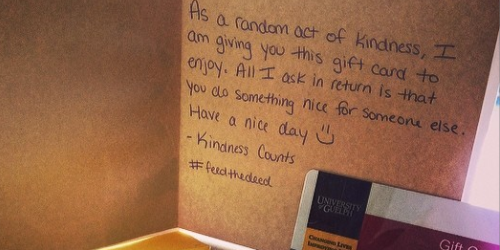 As a random act of Kindness, I
am giving you this gift card to
enjoy. All I ask in return is that
you do something nice for someone else.
Have a nice day :)
- Kindness Counts
#feedthedeed
UNIVERSITY
OF GUELPH
CHANGING LIVES
Gift